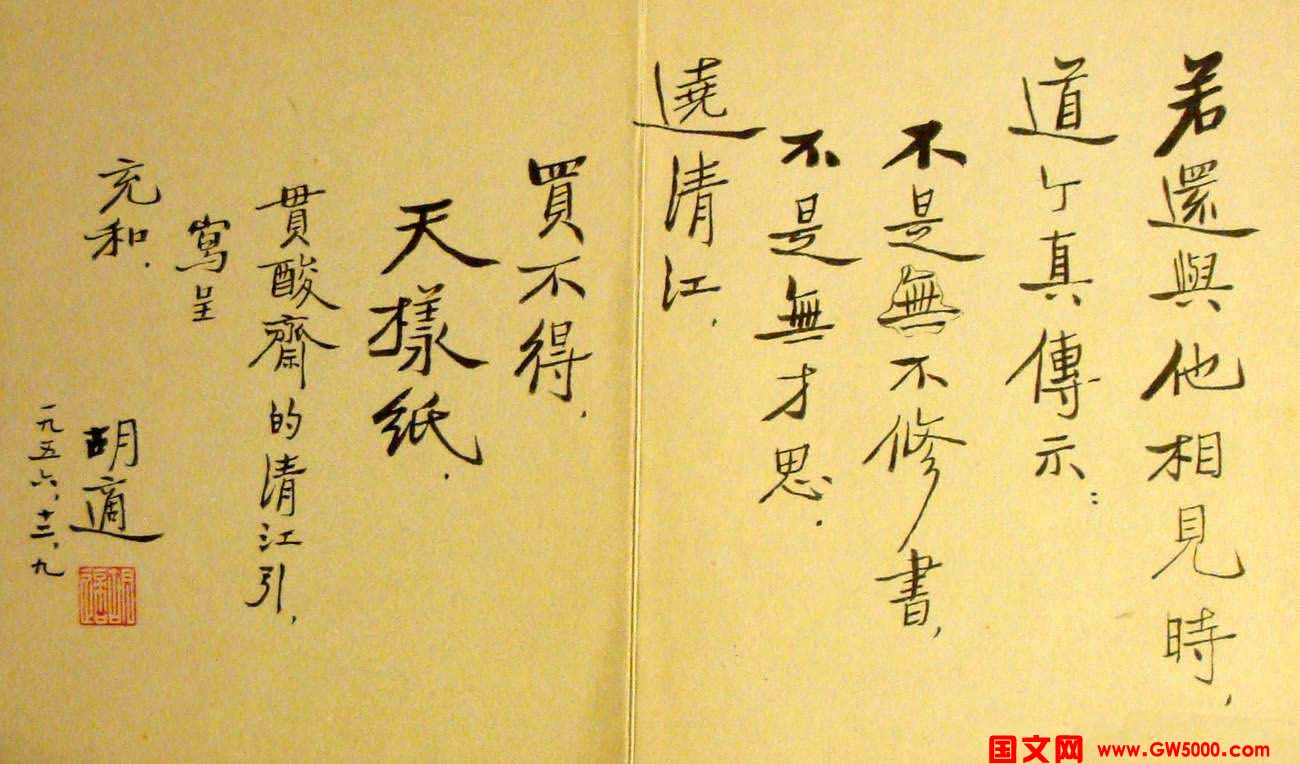 若還與他相見時，
道个真傳示：
不是無不修書，
不是無才思．
遶清江，
買不得，
天樣紙．
貫酸齋的清江引，
寫呈
充和．
胡適
一九五六，十二，九
胡適
国文网 www.GW5000.com